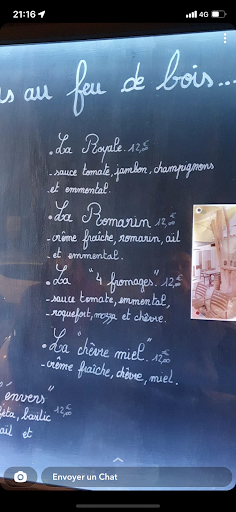 21:16
4G
us au feu de bois...
. La Royale. 12,50€
- sauce tomate, jambon, champignons
et emmental.
. La Romarin 12,00€
- crême fraîche, romarin, ail
et emmental.
. La "4 fromages". 12,50€
- sauce tomate, emmental,
roquefort, mozza et chèvre.
. La "chèvre miel" 12,00€
- crème fraîche, chèvre, miel.
envers"
feta, basilic 12
ail et
Envoyer un Chat